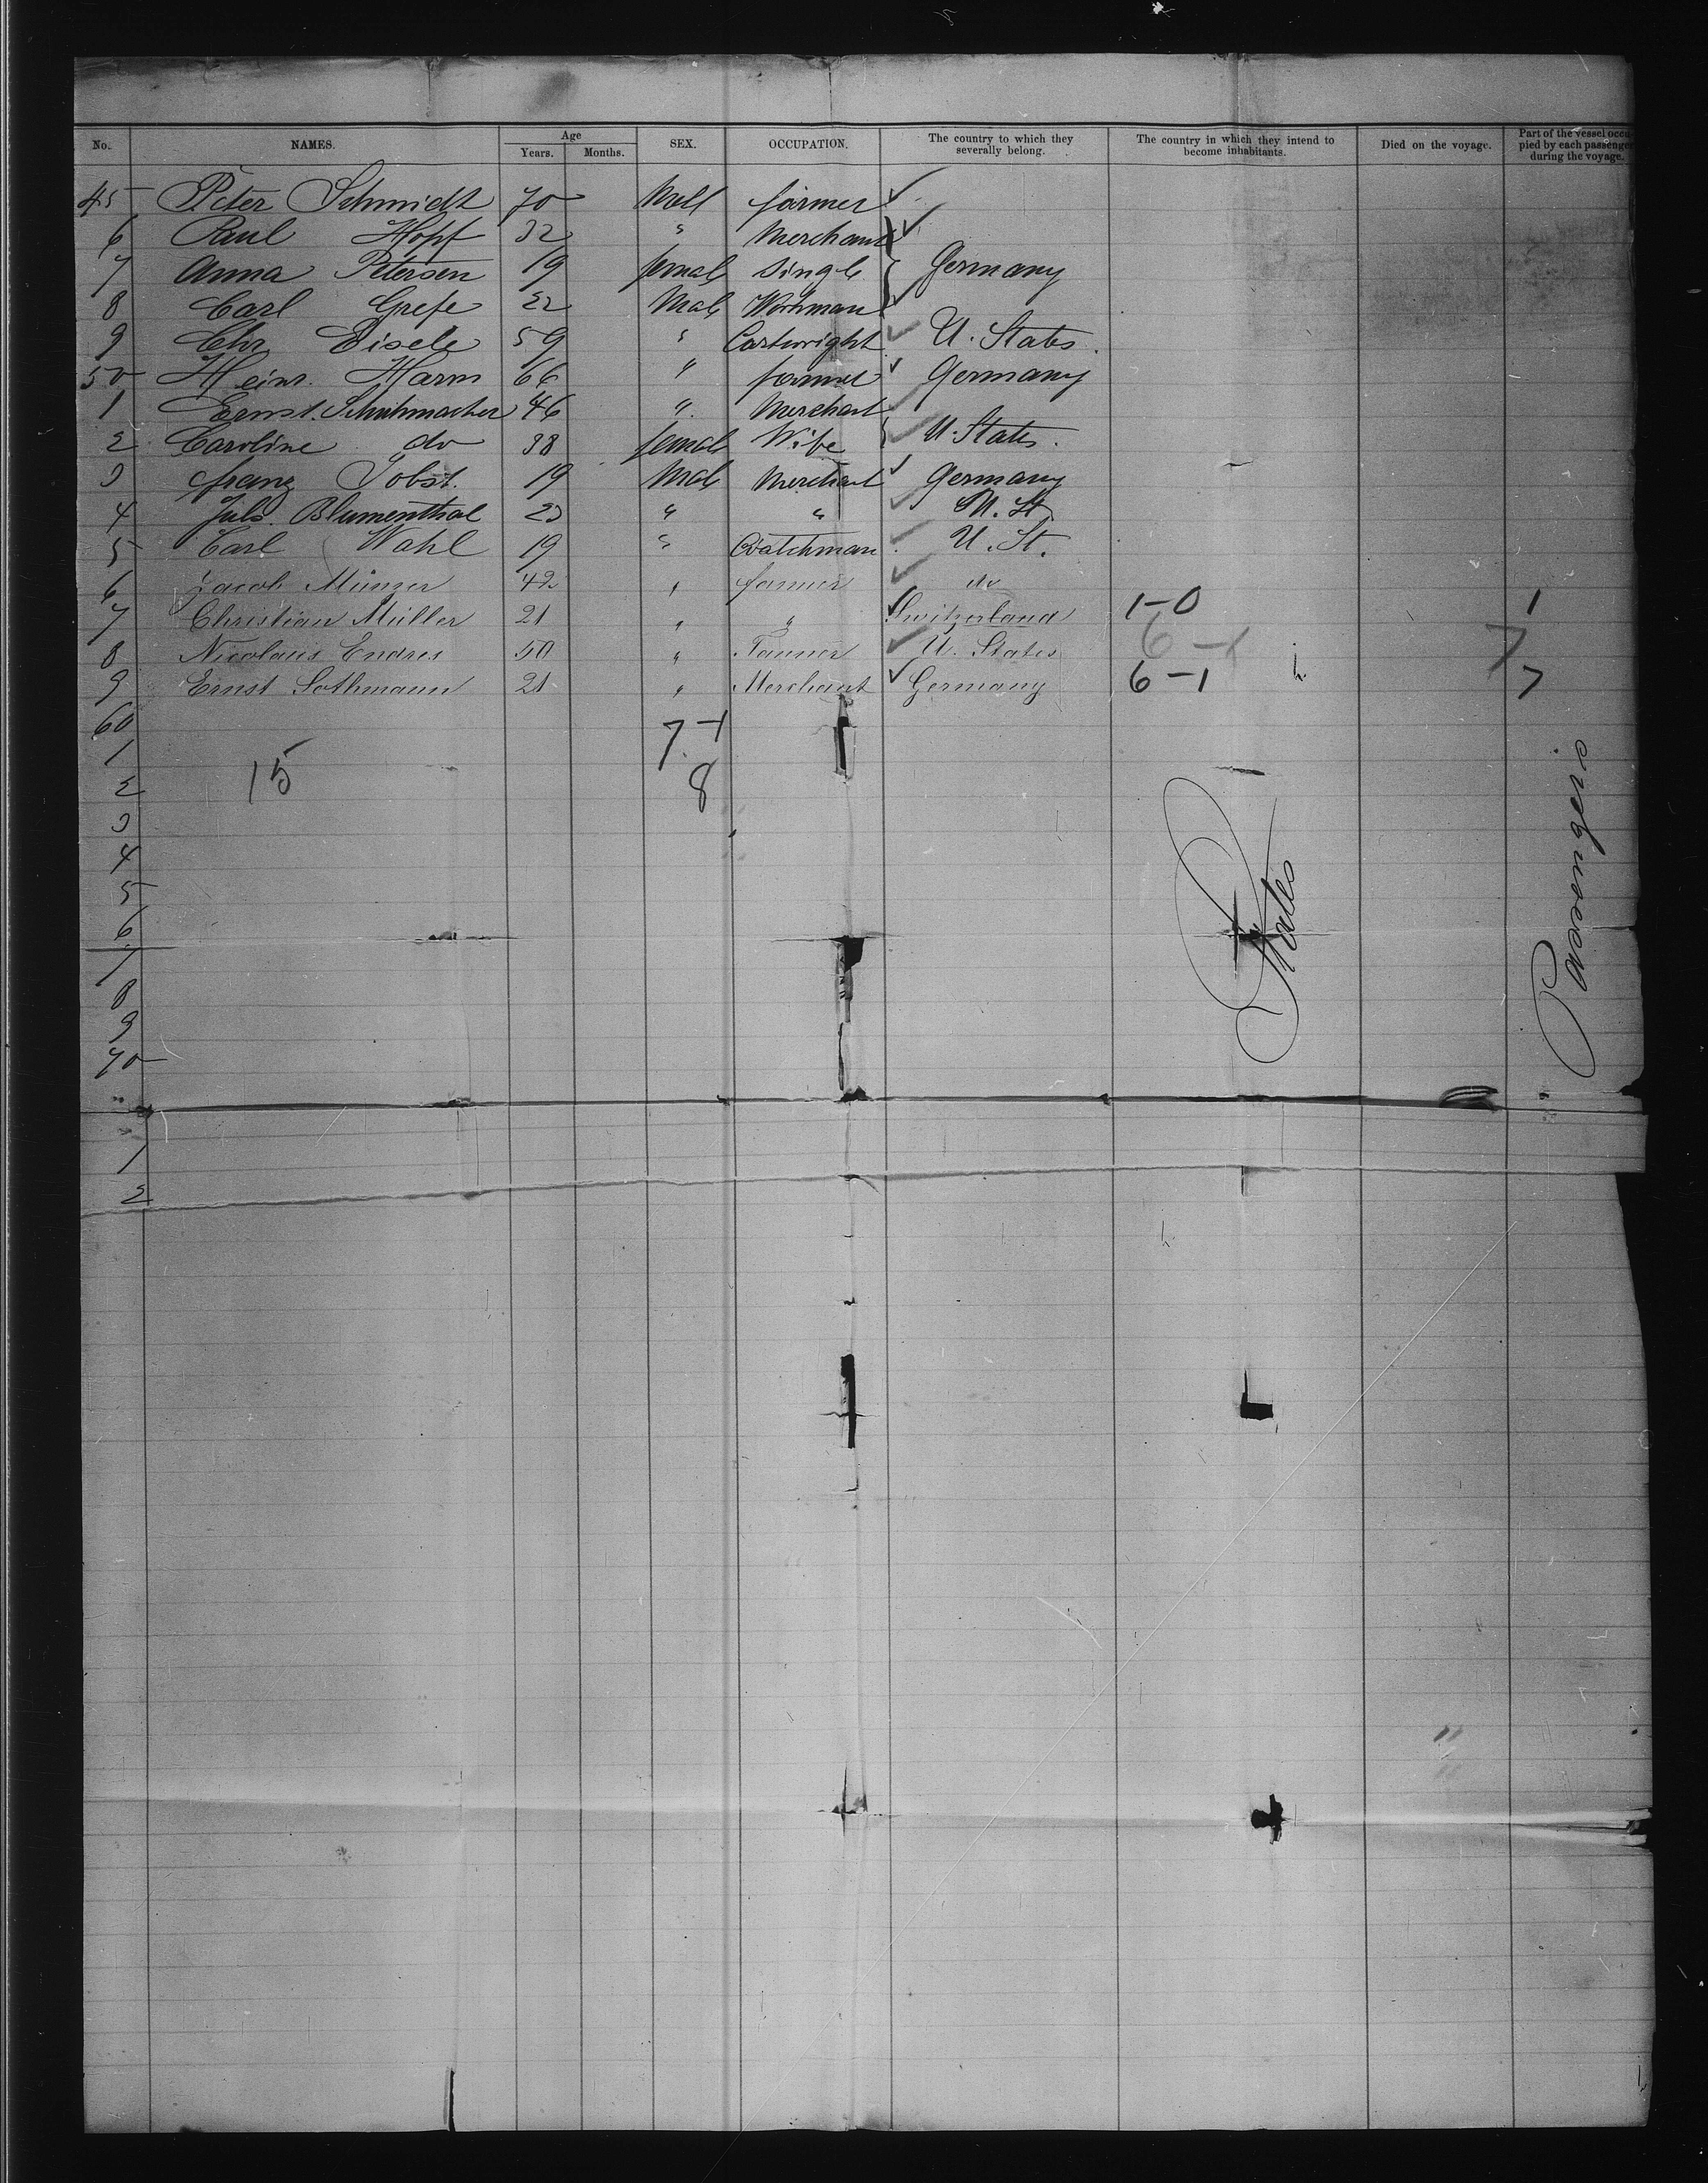 No. NAMES. Age Years. Months. SEX. OCCUPATION. The country to which they severally belong. The country in which they intend to become inhabitants. Died on the voyage. Part of the vessel occupied by each passenger during the voyage.
45 Peter Schmidt 70 Male farmer
6 Paul Hopf 32 " Merchant
7 Anna Petersen 19 female single Germany
8 Carl Grefe 22 Male Workman
9 Chr Eisele 59 " Cartwright U. States.
50 Heinr. Harm 66 " farmer Germany
1 Ernst. Schuhmacher 46 " Merchant
2 Caroline do 38 female Wife U. States.
3 franz Jobst. 19 Male Merchant Germany
4 Juls. Blumenthal 23 " " U. St
5 Carl Wahl 19 " Watchman U. St.
6 Jacob Münzer 42 " farmer do
7 Christian Müller 21 " " Switzerland 1-0 1
8 Nicolaus Endres 50 " Tanner U. States 6-1 7
9 Ernst Sothmann 21 " Merchant Germany 6-1 7
60 7-1
1 15
2 8
3
4
5
6
7
8
9
70
1
2
States
Passengers